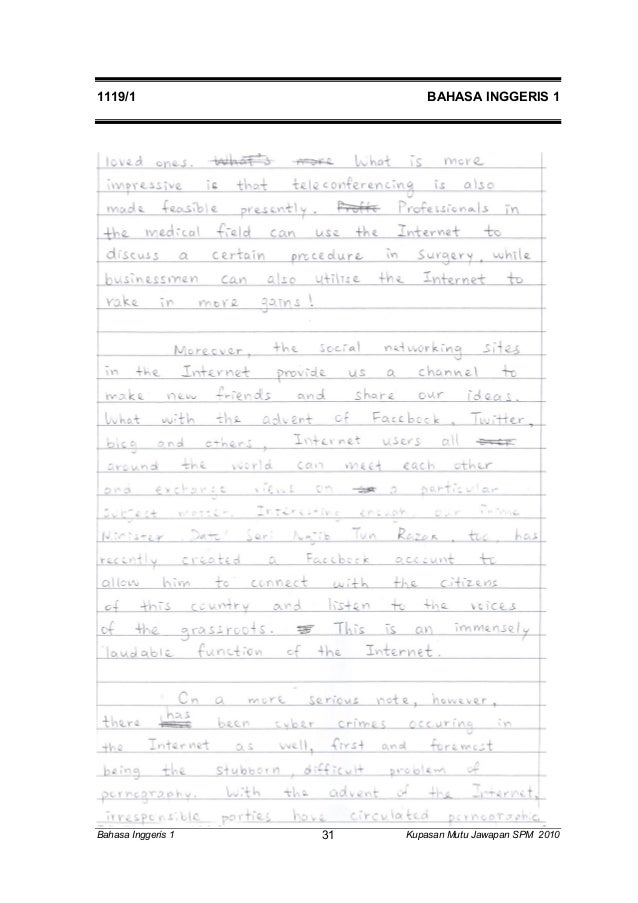 1119/1 BAHASA INGGERIS 1
loved ones. What's more What is more
impressive is that teleconferencing is also
made feasible presently. Proffe Professionals in
the medical field can use the Internet to
discuss a certain procedure in surgery, while
businessmen can also utilise the Internet to
rake in more gains!
Moreover, the social networking sites
in the Internet provide us a channel to
make new friends and share our ideas.
What with the advent of Facebook, Twitter,
blog and others, Internet users all over
around the world can meet each other
and exchange views on a particular
subject matter. Interesting enough, our Prime
Minister, Dato' Seri Najib Tun Razak, too, has
recently created a Facebook account to
allow him to connect with the citizens
of this country and listen to the voices
of the grassroots. This is an immensely
laudable function of the Internet.
On a more serious note, however,
there has been cyber crimes occuring in
the Internet as well, first and foremost
being the stubborn, difficult problem of
pornography. With the advent of the Internet,
irresponsible parties have circulated pornographic
Bahasa Inggeris 1 31 Kupasan Mutu Jawapan SPM 2010